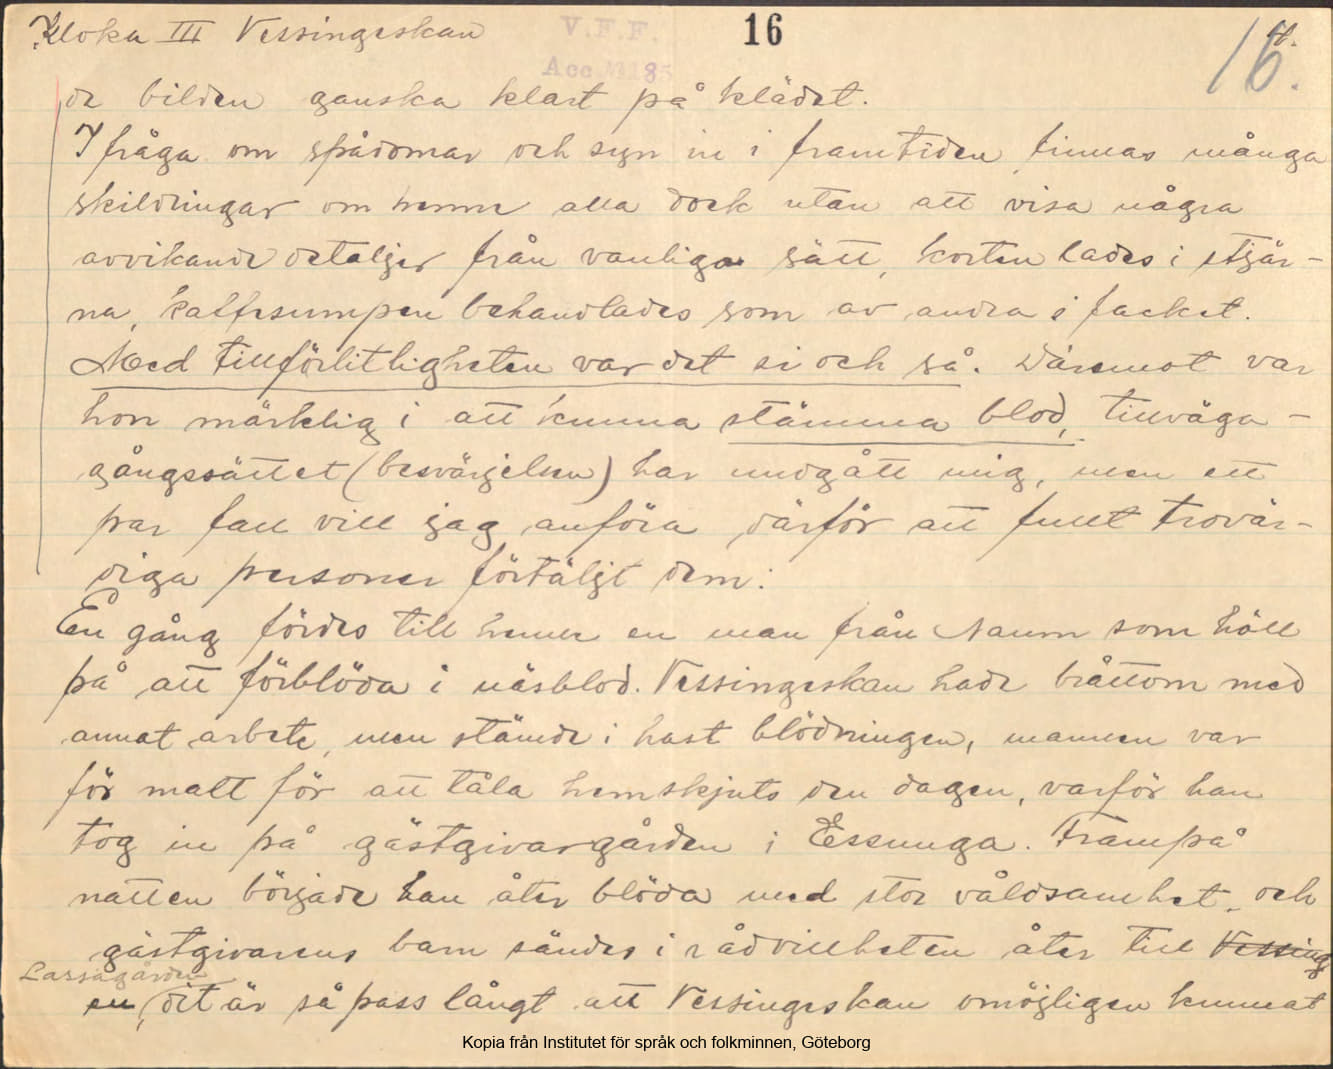 Kloka III Vessingeskan
V.F.F.
16
16.
4.
Acc. № 185
de bilden ganska klart på klädet.
I fråga om spådomar och syn in i framtiden finnas många
skildringar om henne alla dock utan att visa några
avvikande detaljer från vanliga sätt, korten lades i stjär-
na, kaffesumpen behandlades som av andra i facket.
Med tillförlitligheten var det si och så. Däremot var
hon märklig i att kunna stämma blod, tillväga-
gångssättet (besvärjelsen) har undgått mig, men ett
par fall vill jag anföra därför att fullt trovär-
diga personer förtäljt dem:
En gång fördes till henne en man från Naum som höll
på att förblöda i näsblod. Vessingeskan hade bråttom med
annat arbete, men stämde i hast blödningen, mannen var
för matt för att tåla hemskjuts den dagen, varför han
tog in på gästgivargården i Essunga. Frampå
natten började han åter blöda med stor våldsamhet, och
gästgivarens barn sändes i rådvillheten åter till Vessing
Lassagården
en, dit är så pass långt att Vessingeskan omöjligen kunnat
Kopia från Institutet för språk och folkminnen, Göteborg